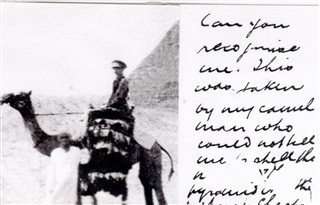 Can you
recognise
me. This
was taken
by my camel
man who
could not tell
me
pyramid the